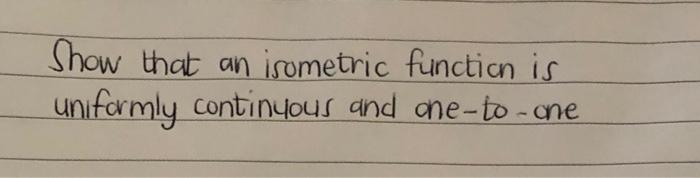 Show that an isometric function is
uniformly continuous and one-to-one